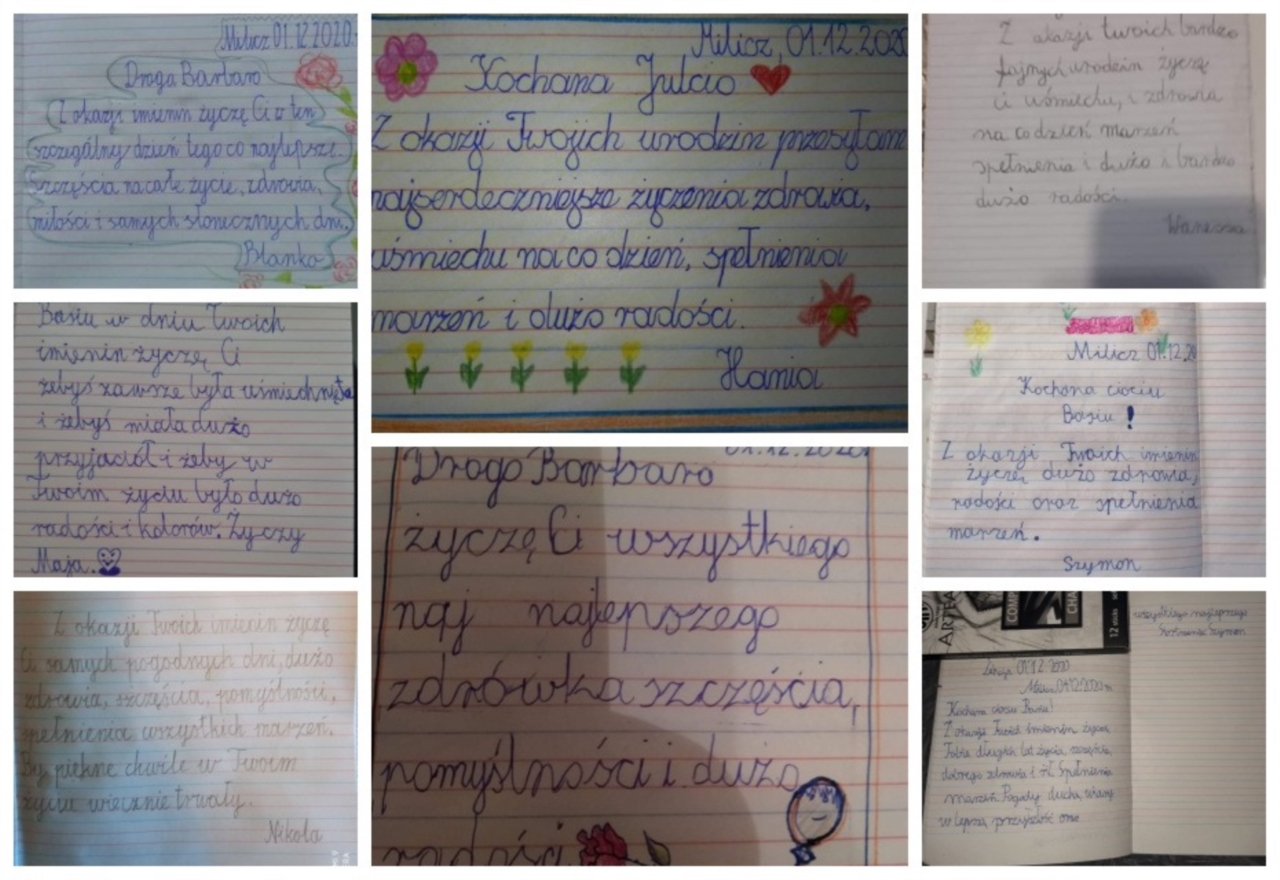 Milicz 01.12.2020r.
Droga Barbaro
Z okazji imienin życzę Ci w ten
szczególny dzień tego co najlepsze.
Szczęścia na całe życie, zdrowia,
miłości i samych słonecznych dni.
Blanka
Basiu w dniu Twoich
imienin życzę Ci
żebyś zawsze była uśmiechnięta
i żebyś miała dużo
przyjaciół i żeby w
Twoim życiu było dużo
radości i kolorów. Życzy
Maja.
Z okazji Twoich imienin życzę
Ci samych pogodnych dni, dużo
zdrowia, szczęścia, pomyślności,
spełnienia wszystkich marzeń.
By piękne chwile w Twoim
życiu wiecznie trwały.
Nikola
Milicz, 01.12.2020
Kochana Julcio
Z okazji Twojich urodzin przesyłam
najserdeczniejsze życzenia zdrowia,
uśmiechu na co dzień, spełnienia
marzeń i dużo radości.
Hania
01.12.2020
Drogo Barbaro
życzę Ci wszystkiego
naj najlepszego
zdrówka szczęścia,
pomyślności i dużo
radości
Z okazji twoich bardzo
fajnych urodzin życzę
ci uśmiechu, i zdrowia
na co dzień marzeń
spełnienia i dużo i bardzo
dużo radości.
Wanessa
Milicz 01.12.20
Kochana ciociu
Basiu!
Z okazji Twoich imienin
życzę dużo zdrowia,
radości oraz spełnienia
marzeń.
Szymon
ARTEA
COMP
CHA
12
wszystkiego najlepszego
Szymon
01.12.2020
Milicz 01.12.2020r.
Kochana ciociu Basiu!
Z okazji Twoich imienin życzę
Tobie długich lat życia, szczęścia,
dobrego zdrowia i spełnienia
marzeń. Pogody ducha, wiary
w lepszą przyszłość